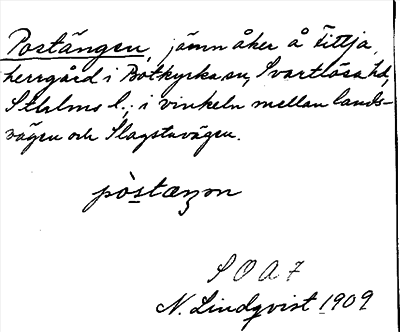 Postängen, jämn åker å Fittja,
herrgård i Botkyrka sn, Svartlösa hd,
Sthlms l., i vinkeln mellan lands-
vägen och Slagstavägen.
pòstæŋən
S O A 7
N. Lindqvist 1909